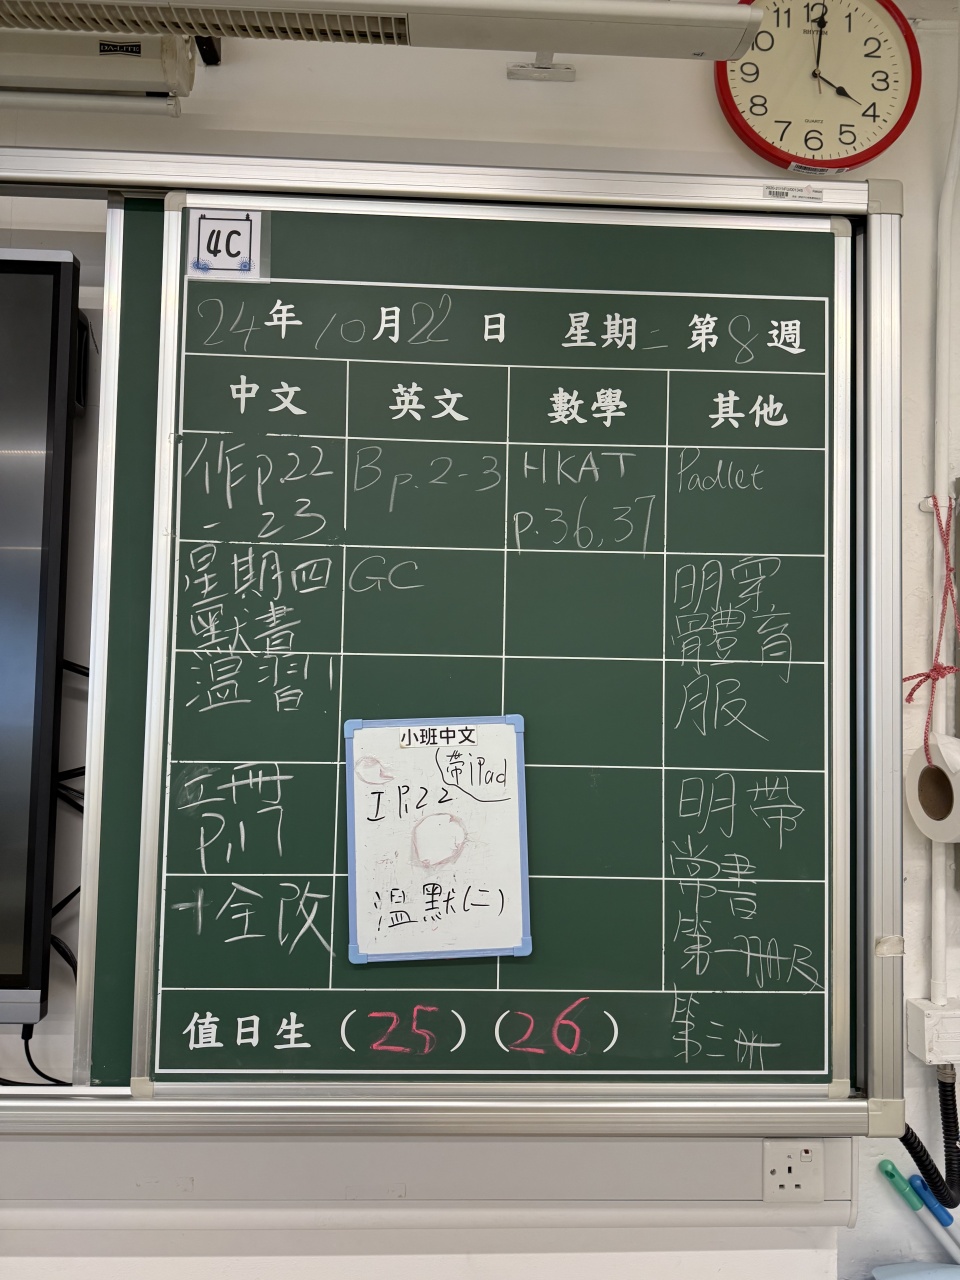 DA-LITE
11 12 1
10 2
9 3
8 4
7 6 5
RHYTHM
QUARTZ
4C
24年10月22日 星期二 第8週
中文 英文 數學 其他
作p.22
- 23
星期四
默書
溫習!
p.17
+全改
Bp.2-3
GC
HKAT
p.36,37
Padlet
明穿
體育
服
明帶
常書
第一冊及
第三冊
小班中文
帶iPad
工P.22
溫默(二)
值日生 (25) (26)